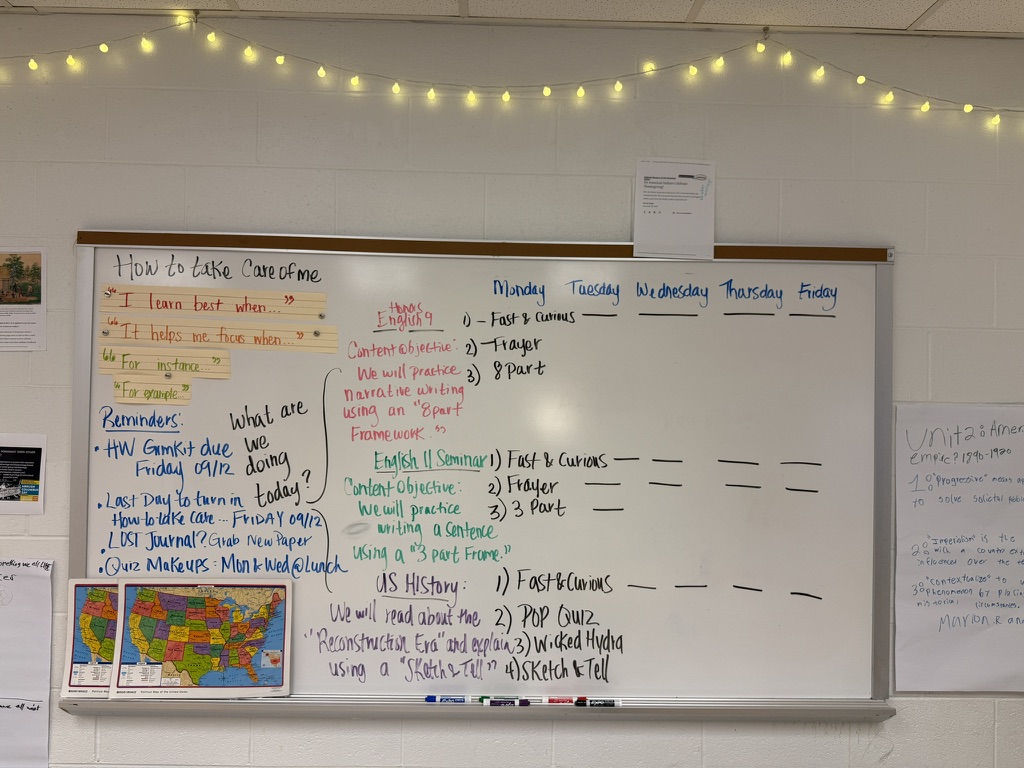 How to take Care of me
"I learn best when..."
"It helps me focus when..."
"For instance..."
"For example..."
Reminders:
• HW GimKit due
Friday 09/12
• Last Day to turn in
How to take care... FRIDAY 09/12
• LOST Journal? Grab New Paper
• Quiz Makeups: Mon & Wed @ Lunch
What are
we
doing
today?
Monday Tuesday Wednesday Thursday Friday
Honors
English 9
Content Objective:
We will practice
narrative writing
using an "8 part
Framework."
1) - Fast & Curious
2) Frayer
3) 8 Part
English 11 Seminar
Content Objective:
We will practice
writing a sentence
using a "3 part Frame."
1) Fast & Curious
2) Frayer
3) 3 Part
US History:
We will read about the
"Reconstruction Era" and explain
using a "Sketch & Tell"
1) Fast & Curious
2) POP QUIZ
3) Wicked Hydra
4) Sketch & Tell
Unit 2: Ameri
empire? 1890-1920
1. "Progressive" means
to solve
2. "Imperialism" is the
with a
influence over the
3. "Contextualize" to
phenomenon by
historical circumstances.